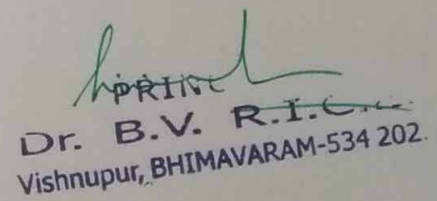 PRIN
Dr. B.V. R.I.C.
Vishnupur, BHIMAVARAM-534 202.